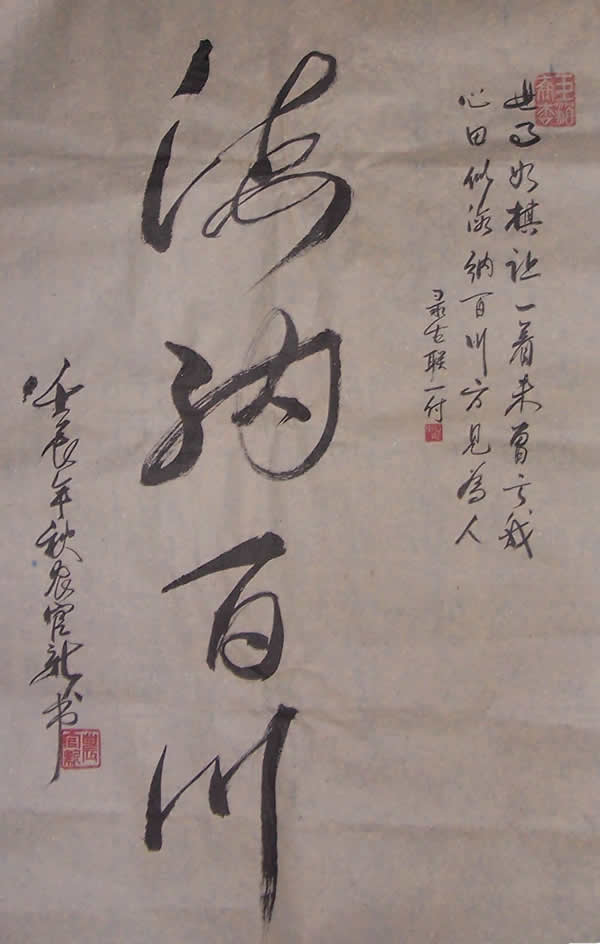 世事如棋让一着未曾亏我
心田似海纳百川方见為人
录古联一付
海纳百川
壬辰年秋农官新书